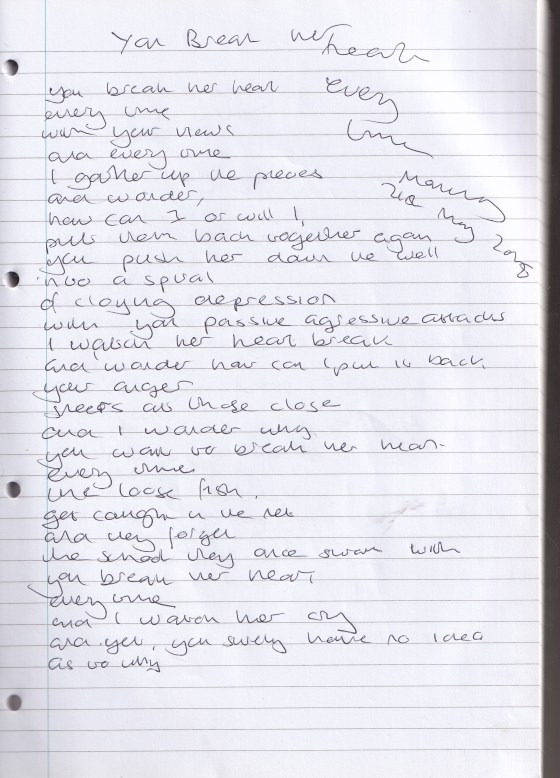 You Break her heart
every
time
Monday
21st May 2018
you break her heart
every time
with your news
and every time
I gather up the pieces
and wonder,
how can I or will I,
put them back together again
you push her down the well
into a spiral
of cloying depression
with your passive agressive attacks
I watch her heart break
and wonder how can I put it back
your anger
meets all those close
and I wonder why
you want to break her heart
every time
the loose fish,
get caught in the net
and they forget
the school they once swam with
you break her heart
every time
and I watch her cry
and yet, you surely have no idea
as to why